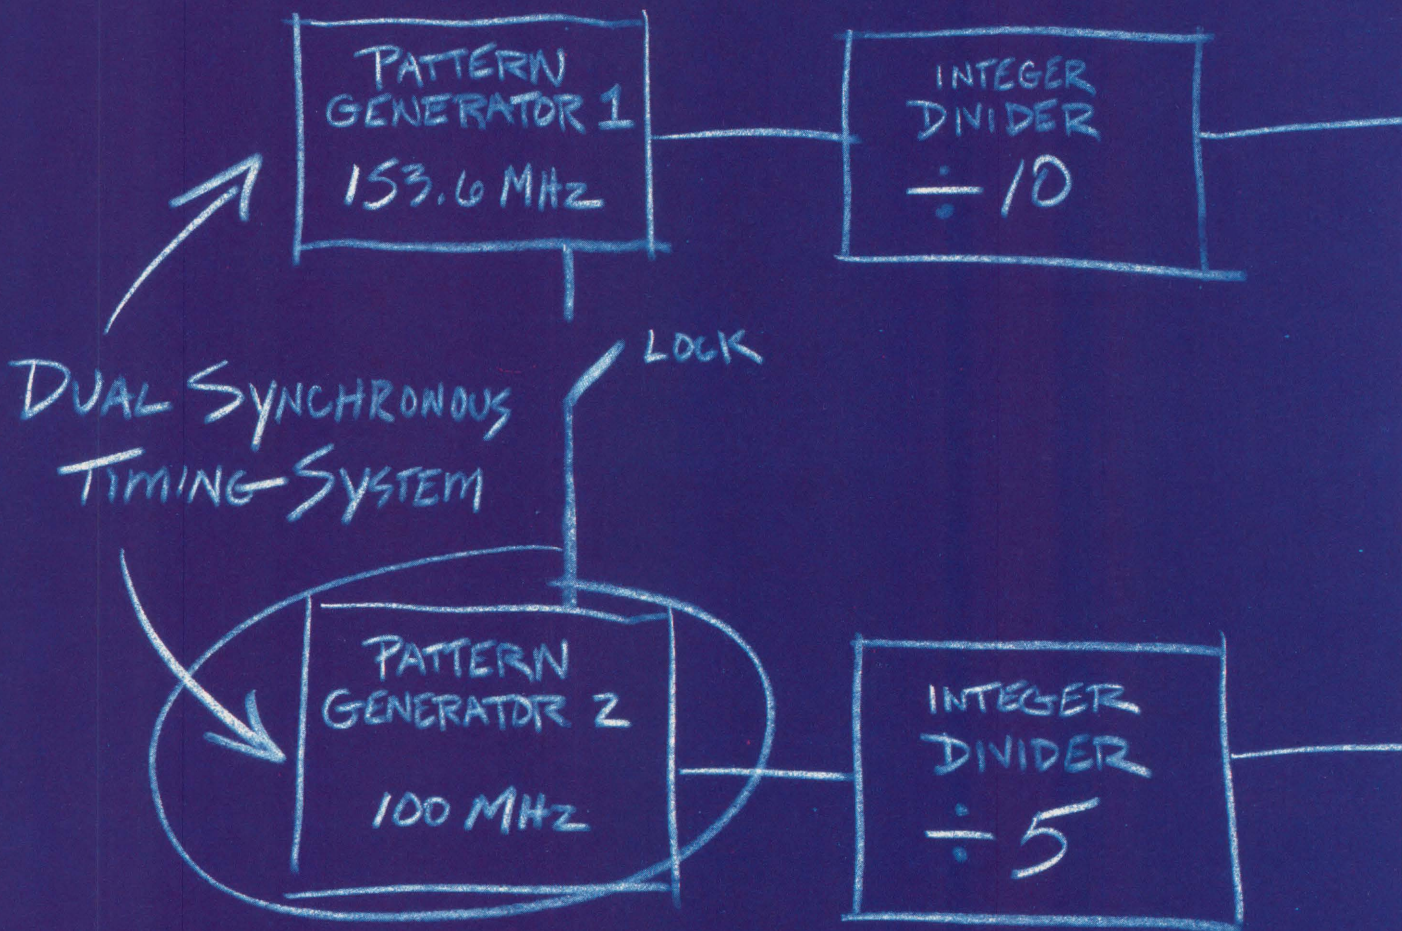 PATTERN
GENERATOR 1
153.6 MHz
INTEGER
DIVIDER
÷ 10
LOCK
DUAL SYNCHRONOUS
TIMING SYSTEM
PATTERN
GENERATOR 2
100 MHz
INTEGER
DIVIDER
÷ 5